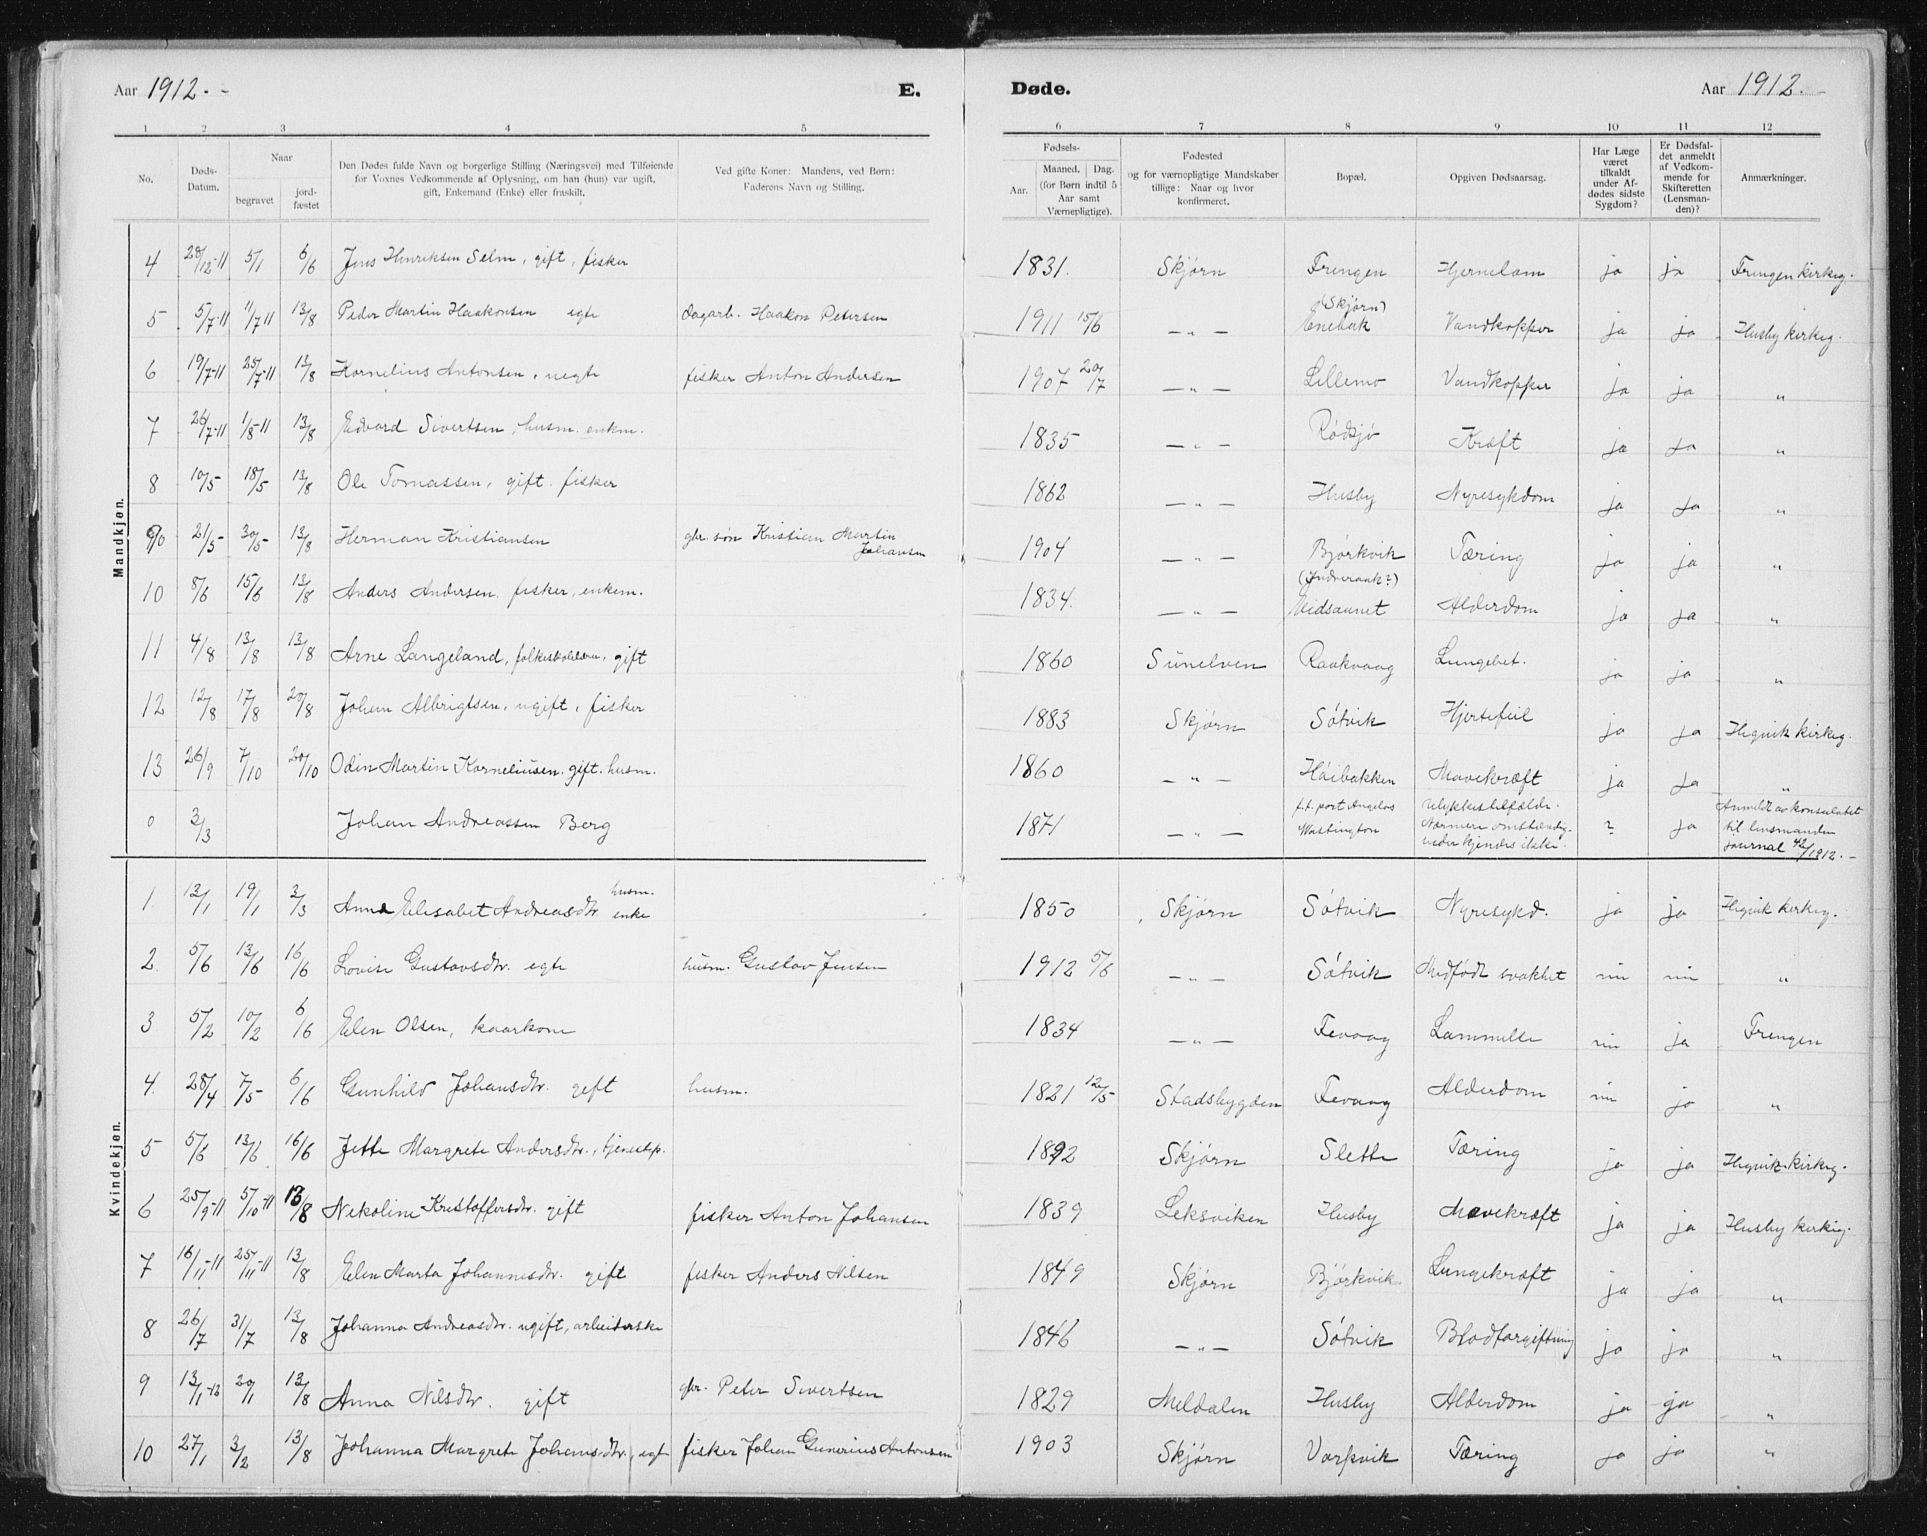 Aar 1912.
E. Døde.
Aar 1912.
1 2 3 4 5 6 7 8 9 10 11 12
No.
Døds-Datum.
Naar
begravet
jord-fæstet
Den Dødes fulde Navn og borgerlige Stilling (Næringsvei) med Tilføiende
for Voxnes Vedkommende af Oplysning, om han (hun) var ugift,
gift, Enkemand (Enke) eller fraskilt.
Ved gifte Koner: Mandens, ved Børn:
Faderens Navn og Stilling.
Fødsels-
Aar.
Maaned. Dag.
(for Børn indtil 5
Aar samt
Værnepligtige).
Fødested
og for værnepligtige Mandskaber
tillige: Naar og hvor
konfirmeret.
Bopæl.
Opgiven Dødsaarsag.
Har Læge
været
tilkaldt
under Af-
dødes sidste
Sygdom?
Er Dødsfal-
det anmeldt
af Vedkom-
mende for
Skifteretten
(Lensman-
den)?
Anmærkninger.
Mandkjøn.
4 28/12-11 5/1 6/6 Jens Henriksen Selm, gift, fisker 1831. Skjørn Frengen Hjernelam ja ja Frengen kirkeg.
5 5/7-11 11/7 11 13/8 Peder Martin Haakonsen egte dagarb. Haakon Petersen 1911 15/6 -"- (Skjørn) Enebak Vandkopper ja ja Husby kirkeg.
6 19/7-11 25/7-11 13/8 Kornelius Antonsen, uegte fisker Anton Andersen 1907 20/7 -"- Lillemo Vandkopper ja ja "
7 26/7-11 1/8-11 13/8 Edvard Sivertsen, husm. enkm. 1835 -"- Rødsjø Kræft ja ja "
8 10/5 18/5 13/8 Ole Tomassen, gift. fisker 1862 -"- Husby Nyresykdom ja ja "
9 21/5 30/5 13/8 Herman Kristiansen gbr. søn Kristian Martin Johansen 1904 -"- Bjørkvik Tæring ja ja "
10 8/6 15/6 13/8 Anders Andersen, fisker, enkem. 1834. -"- Eidsaunet Alderdom ja ja "
11 4/8 13/8 13/8 Arne Langeland, folkeskolelærer, gift 1860 Sunelven Raakvaag Lungebet. ja ja "
12 12/8 17/8 20/8 Johan Albrigtsen, ugift, fisker 1883 Skjørn Søtvik Hjertefeil ja ja Hegvik kirkeg.
13 26/9 7/10 20/10 Odin Martin Korneliusen, gift. husm. 1860 -"- Høibakken Mavekræft ja ja "
0 3/3 Johan Andreassen Berg 1871 -"- f.t. port Angelos Wastington Ulykkestilfælde. Nærmere omstændig-heder kjendes ikke. ? ja Anmeldt av konsulatet til lensmanden journal 42/1912.-
Kvindekjøn.
1. 13/1 19/1 3/3 Anna Elisabet Andreasdtr. husm. enke 1850 Skjørn Søtvik Nyresykd. ja ja Hegvik kirkeg.
2. 5/6 13/6 16/6 Lovise Gustavsdtr. egte husm. Gustav Jensen 1912 5/6 -"- Søtvik Medfødt svakhet nei nei "
3 5/2 10/2 6/6 Elen Olsen, kaarkone 1834 -"- Fevaag Lammelse nei ja Frengen
4. 28/4 7/5 6/6 Gunhild Johansdtr. gift husm. 1821 12/5 Stadsbygden Fevaag Alderdom nei ja "
5 5/6 13/6 16/6 Jette Margrete Andersdtr., tjenestep. 1892 Skjørn Slette Tæring ja ja Hegvik kirkeg.
6 25/9-11 5/10-11 13/8 Nekoline Kristoffersdtr. gift fisker Anton Johansen 1839 Leksviken Husby Mavekræft ja ja Husby kirkeg.
7 16/11-11 25/11-11 13/8 Elen Marta Johannesdtr. gift fisker Anders Nilsen 1849 Skjørn Bjørkvik Lungekræft ja ja "
8 26/7 31/7 13/8 Johanna Andreasdtr. ugift, arbeiderske 1846 -"- Søtvik Blodforgiftning ja ja "
9 13/1-12 20/1 13/8 Anna Nilsdtr. gift gbr. Peter Sivertsen 1829 Meldalen Husby Alderdom ja ja "
10 27/1 3/2 13/8 Johanna Margrete Johansdtr., egte fisker Johan Gunerius Antonsen 1903 Skjørn Varpvik Tæring ja ja "